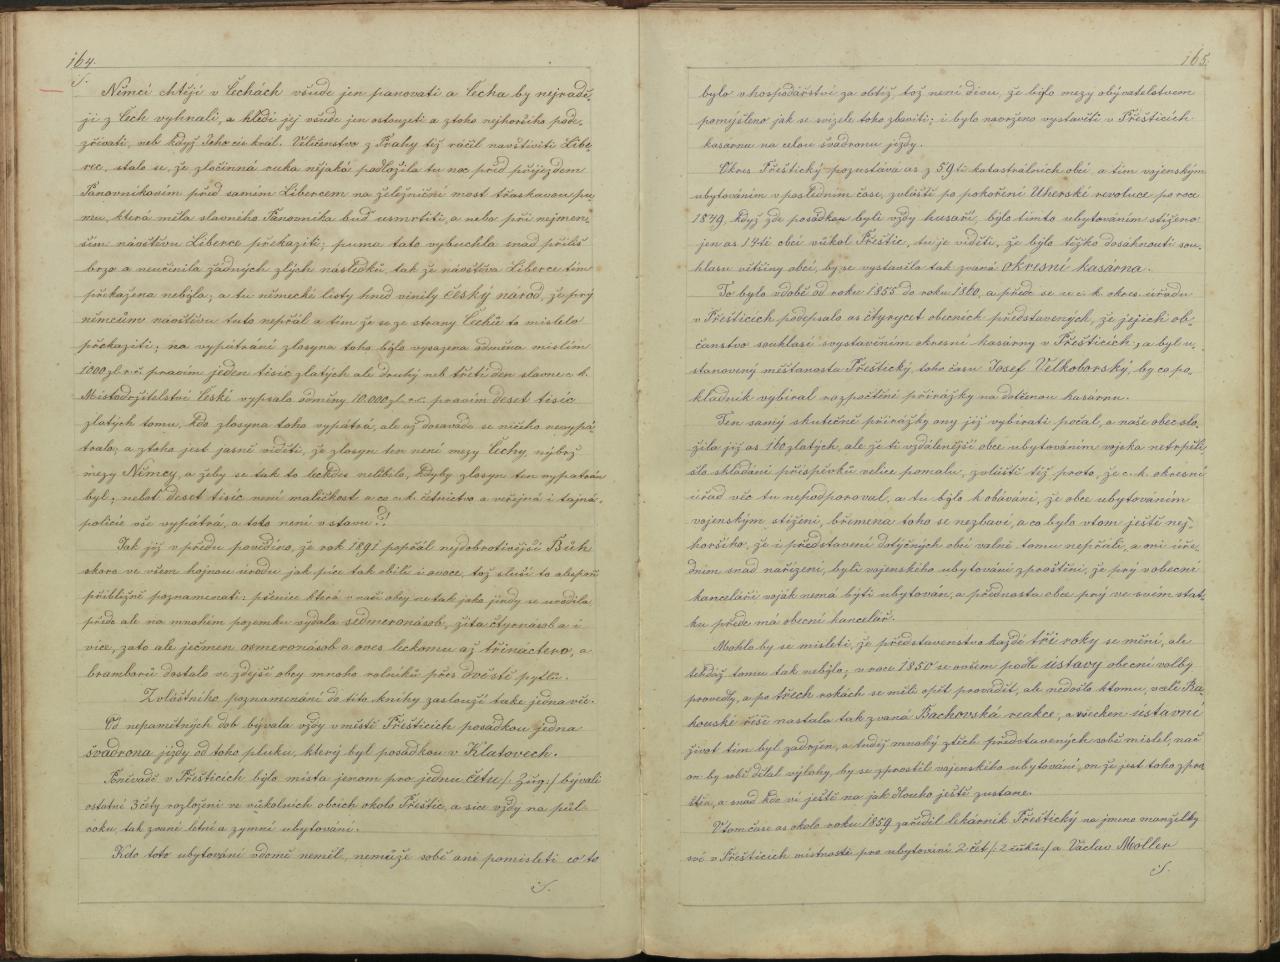 164.
Němci chtějí v Čechách všude jen panovati a Čecha by nejradě-
ji z Čech vyhnali, a hledí jej všude jen ostouzeti a z toho nejhoršího pode-
zřívati, neb když Jeho cís. král. Veličenstvo z Prahy též ráčil navštíviti Libe-
rec, stalo se, že zločinná ruka nějaká podložila tu noc před příjezdem
Panovníkovim před samím Libercem na železniční most třaskavou pu-
mu, která měla slavního Panovníka buď usmrtiti, a nebo při nejmen-
ším návštěvu Liberce překaziti; puma tato vybuchla snad příliš
brzo a neučinila žádných zlých následků, tak že návštěva Liberce tím
překažena nebyla; a tu německé listy hned vinily český národ, že prý
němcům návštěvu tuto nepřál a tím že se ze strany Čechů to mislelo
překaziti; na vypátrání zlosyna toho bylo vysazena odměna mislím
1000 zl. r. č. pravím jeden tisíc zlatých ale druhý neb třetí den slavné c. k.
Místodržitelství České vypsalo odměny 10.000 zl. r. č. pravím deset tisíc
zlatých tomu, kdo zlosyna toho vypátrá, ale až dosaváde se ničeho nevypá-
tralo; a z toho jest jasně viděti, že zlosyn ten není mezy Čechy, nýbrž
mezy Němcy, a žeby se tak to leckdes nelíbilo, kdyby zlosyn ten vypátrán
byl; neboť deset tisíc není maličkost a co c. k. četnictvo a veřejná i tajná
policie vše vypátrá, a toto není v stavu?!
Jak již v předu povědíno, že rok 1891 popřál nejdobrotivější Bůh
skoro ve všem hojnou úrodu jak píce tak obilí i ovoce, tož sluší to alespoň
přibližně poznamenati: pšenice která v naší obcy ne tak jako jindy se urodila
přede ale na mnohem pozemku vydala sedmeronásob, žita čtyrnásob a i
více, zato ale ječmen osmeronásob a oves leckomu až třináctero, a
bramborů dostalo ve zdejší obcy mnoho rolníků přes dvě stě pytlů.
Zvláštního poznamenání do této knihy zaslouží take jedna věc.
Od nepamětných dob bývala vždy v městě Přešticích posádkou jedna
švadrona jízdy od toho pluku, který byl posádkou v Klatovech.
Poněvadž v Přešticích bylo místa jenom pro jednu četu /: Zug :/ bývali
ostatní 3 čety rozloženi ve vůkolních obcích okolo Přeštic, a sice vždy na půl
roku, tak zvané letní a zymní ubytování.
Kdo toto ubytování vdomě neměl, nemůže sobě ani pomisleti co to
165.
bylo v hospodářství za obtíž, tož není divu, že bylo mezy obyvatelstvem
pomyšleno jak se svízele toho zbaviti; i bylo navrženo vystavěti v Přešticích
kasárnu na celou švadronu jízdy.
Okres Přeštický pozustává as z 59ti katastrálních obcí a tím vojenským
ubytováním v posledním čase, zvláště po pokoření Uherské revoluce po roce
1849, když zde posádkou byli vždy husaři, bylo tímto ubytováním stíženo
jen as 14ti obcí vůkol Přeštic, tu je viděti, že bylo těžko dosáhnouti sou-
hlasu většiny obcí, by se vystavila tak zvaná okresní kasárna.
To bylo v době od roku 1855 do roku 1860, a přede se u c. k. okres. úřadu
v Přešticích podepsalo as čtyrycet obecních představených, že jejich ob-
čanstvo souhlasí s vystavěním okresní kasárny v Přešticích; a byl u-
stanovený měšťanosta Přeštický, toho času Josef Velkoborský, by co po-
kladník vybíral rozpočtěné přirážky na dotčenou kasárnu.
Ten samý skutečně přirážky ony již vybírati počal, a naše obec slo-
žila již as 160 zlatých, ale že ti vzdálenější obce ubytováním vojska netrpěli
šlo skládání příspěvků velice pomalu, zvláště též proto, že c. k. okresní
úřad věc tu nepodporoval, a tu bylo k obávání, že obce ubytováním
vojenským stížení, břemena toho se nezbaví, a co bylo vtom ještě nej-
horšího, že i představení dotyčných obcí valně tomu nepřáli, a oni úře-
dním snad nařízení, byli vojenského ubytování zproštěni, že prý vobecní
kanceláři voják nemá býti ubytován; a přednosta obce prý ve svém stat-
ku přede má obecní kancelář.
Mohlo by se misleti, že představenstvo každé tři roky se mění, ale
tehdáž tomu tak nebylo; v roce 1850 se ovšem podle ústavy obecní volby
provedly, a po třech rokách se měli opět provádět, ale nedošlo ktomu, vcelé Ra-
kouské říši nastala tak zvaná Bachovská reakce, a všecken ústavní
život tím byl zadržen, a tudíž mnohý ztěch představených sobě mislel, nač
on by sobě dělal výlohy, by se zprostil vojenského ubytování, on že jest toho zpro-
štěn, a snad kdo ví ještě na jak dlouho ještě zustane.
Vtom čase as okolo roku 1859 zařídil lékárník Přeštický na jmeno manželky
své v Přešticích místnosti pro ubytování 2 čet /: 2 cuků :/ a Václav Möller